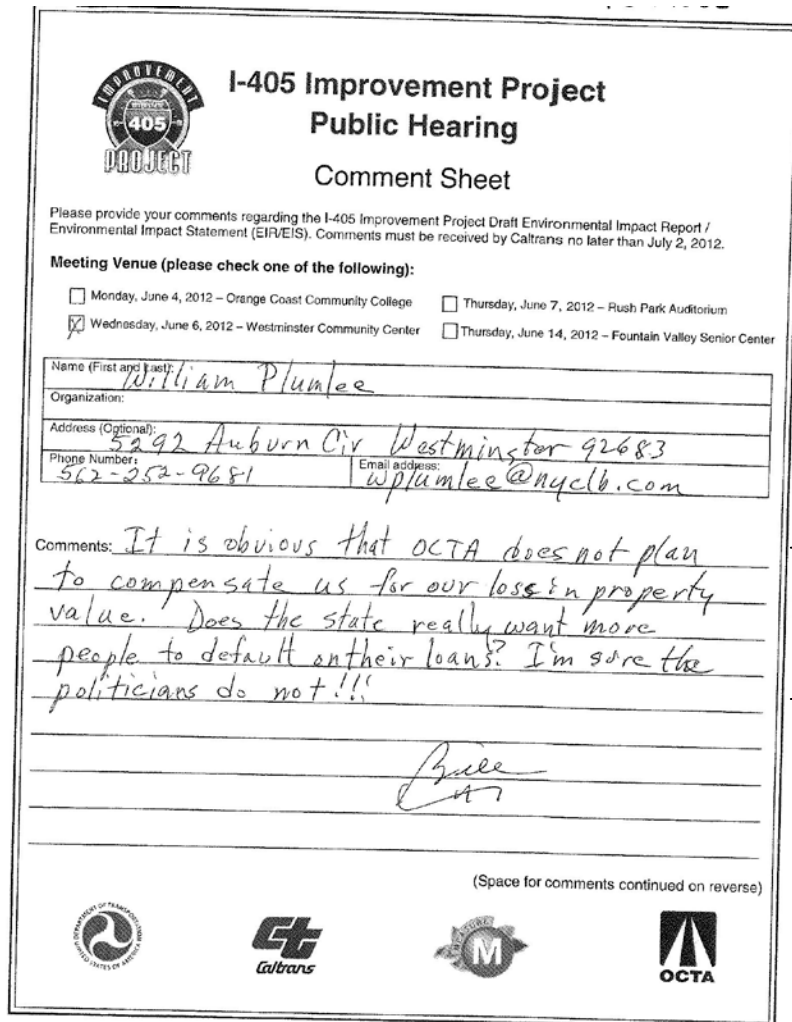 IMPROVEMENT
405
PROJECT
I-405 Improvement Project
Public Hearing
Comment Sheet
Please provide your comments regarding the I-405 Improvement Project Draft Environmental Impact Report /
Environmental Impact Statement (EIR/EIS). Comments must be received by Caltrans no later than July 2, 2012.
Meeting Venue (please check one of the following):
Monday, June 4, 2012 – Orange Coast Community College
Thursday, June 7, 2012 – Rush Park Auditorium
Wednesday, June 6, 2012 – Westminster Community Center
Thursday, June 14, 2012 – Fountain Valley Senior Center
Name (First and Last): William Plumlee
Organization:
Address (Optional): 5292 Auburn Cir Westminster 92683
Phone Number: 562-252-9681 Email address: wplumlee@nyclb.com
Comments: It is obvious that OCTA does not plan
to compensate us for our loss in property
value. Does the state really want more
people to default on their loans? I'm sure the
politicians do not!!!
Bill
(Space for comments continued on reverse)
DEPARTMENT OF TRANSPORTATION
UNITED STATES OF AMERICA
Caltrans
MEASURE
M
OCTA